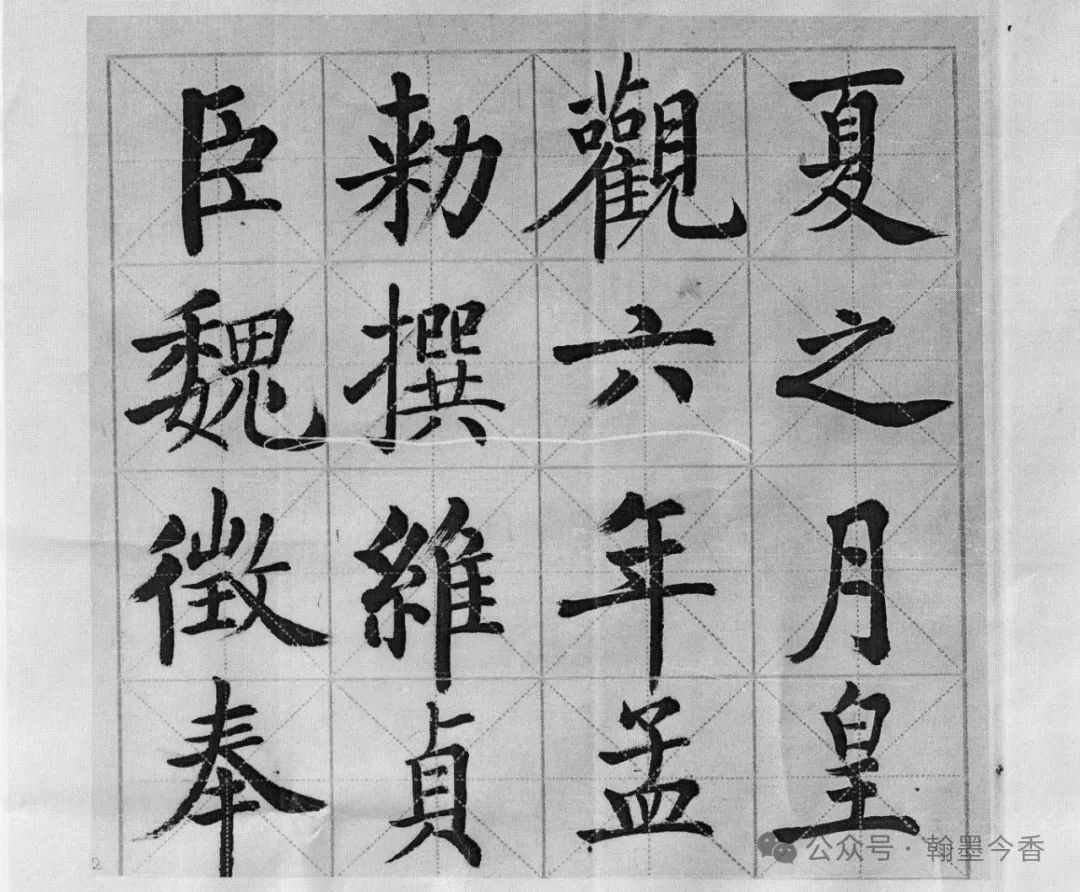 臣魏徵奉
勑撰維貞
觀六年孟
夏之月皇
2
公众号·翰墨今香